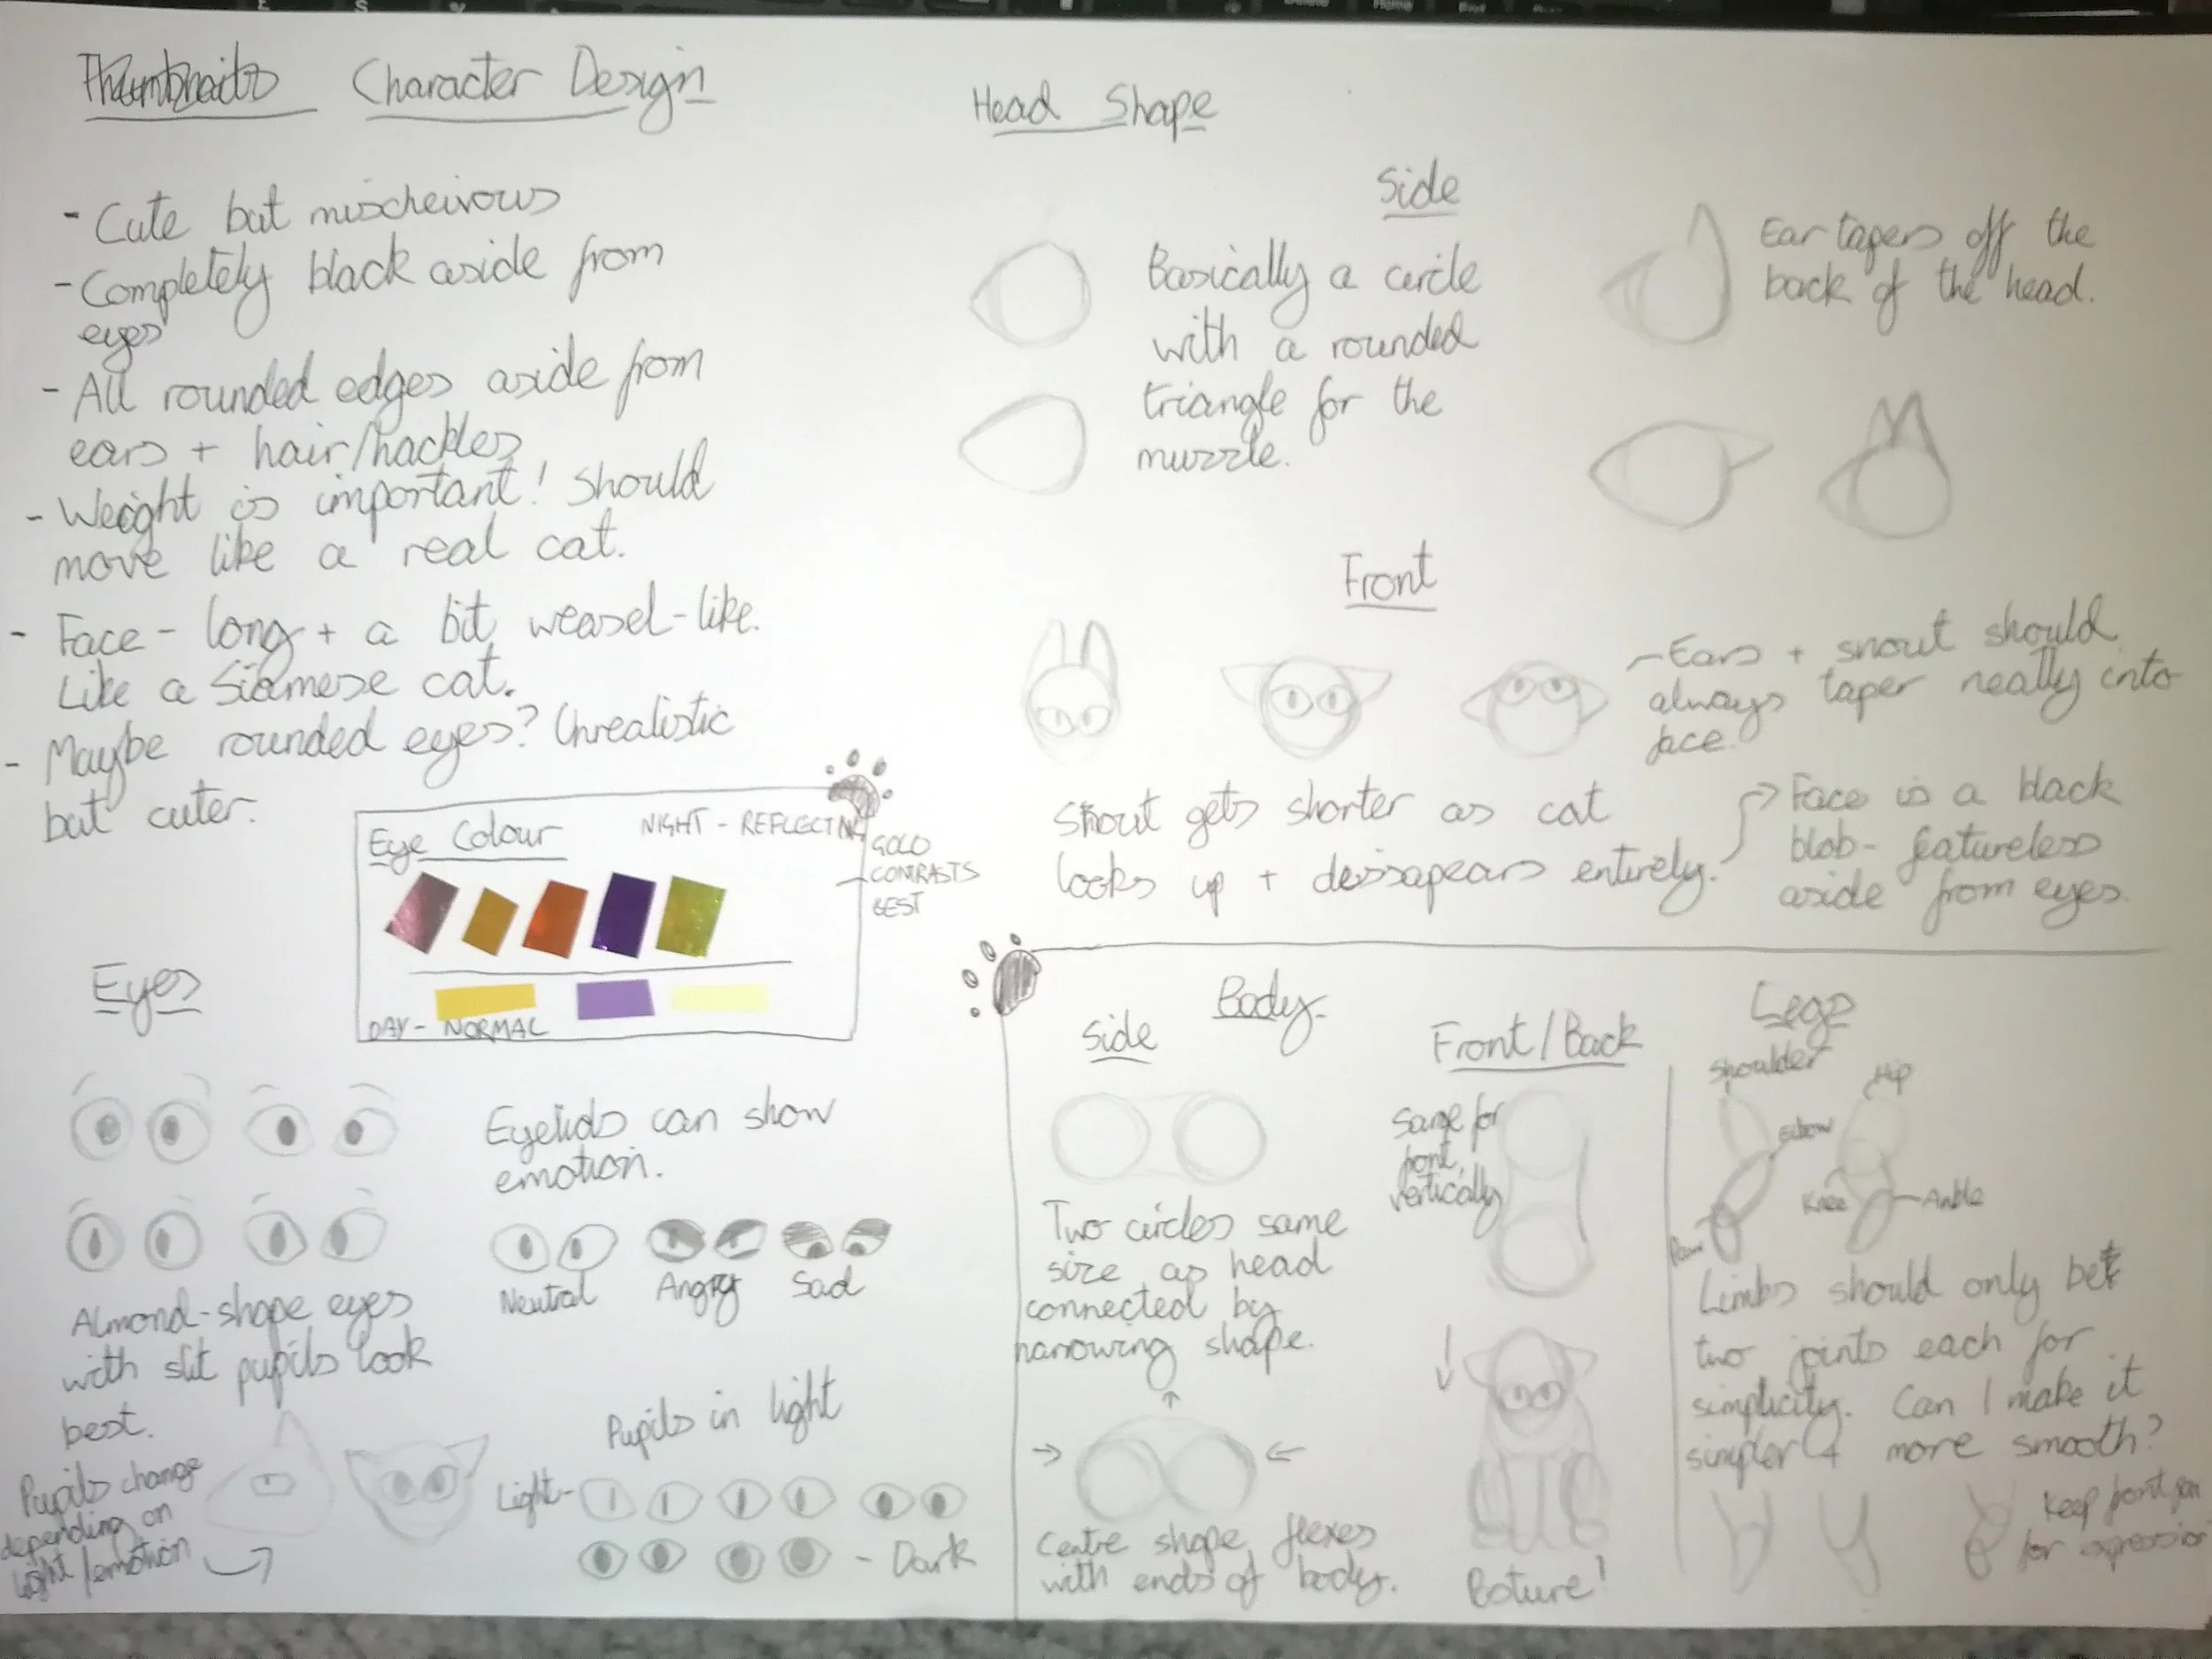 Thumbnails Character Design
- Cute but mischeivous
- Completely black aside from
eyes
- All rounded edges aside from
ears + hair/hackles
- Weight is important! Should
move like a real cat.
- Face - long + a bit weasel-like.
Like a Siamese cat.
- Maybe rounded eyes? Unrealistic
but cuter.
Eye Colour
NIGHT - REFLECTING
GOLD
CONTRASTS
BEST
DAY - NORMAL
Eyes
Eyelids can show
emotion.
Neutral
Angry
Sad
Almond-shape eyes
with slit pupils look
best.
Pupils change
depending on
light/emotion
Pupils in light
Light-
- Dark
Head Shape
Side
Basically a circle
with a rounded
triangle for the
muzzle.
Ear tapers off the
back of the head.
Front
- Ears + snout should
always taper neatly into
face.
Snout gets shorter as cat
looks up + dissapears entirely.
Face is a black
blob- featureless
aside from eyes.
Body
Side
Two circles same
size as head
connected by
narrowing shape.
Centre shape flexes
with ends of body.
Front/Back
Same for
front,
vertically
Legs
Shoulder
Hip
Elbow
Knee
- Ankle
Paw
Limbs should only be
two joints each for
simplicity. Can I make it
simpler + more smooth?
Keep front
for expression